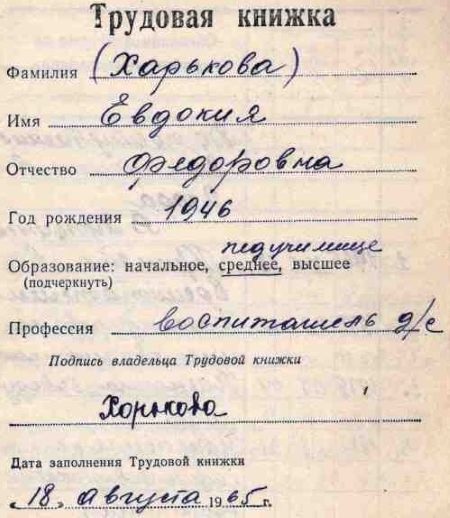 Трудовая книжка
Фамилия (Харькова)
Имя Евдокия
Отчество Федоровна
Год рождения 1946
педучилище
Образование: начальное, среднее, высшее
(подчеркнуть)
Профессия воспитатель д/с
Подпись владельца Трудовой книжки
Харькова
Дата заполнения Трудовой книжки
„18" августа 1965 г.